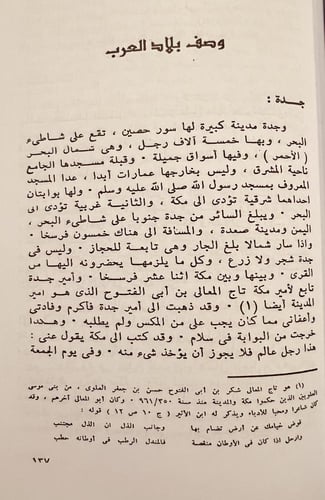 وصف بلاد العرب
جدة :
وجدة مدينة كبيرة لها سور حصين ، تقع على شاطىء
البحر ، وبها خمسة آلاف رجل ، وهى شمال البحر
( الأحمر ) ، وفيها أسواق جميلة ٠ وقبلة مسجدها الجامع
ناحية المشرق ، وليس بخارجها عمارات أبدا ، عدا المسجد
المعروف بمسجد رسول الله صلى الله عليه وسلم ٠ ولها بوابتان
احداهما شرقية تؤدى الى مكة ، والثانية غربية تؤدى الى
البحر ٠ ويبلغ السائر من جدة جنوبا على شاطىء البحر ،
اليمن ومدينة صعدة ، والمسافة الى هناك خمسون فرسخا ٠
واذا سار شمالا بلغ الجار وهى تابعة للحجاز ٠ وليس فى
جدة شجر ولا زرع ، وكل ما يلزمها يحضرونه اليها من
القرى ٠ وبينها وبين مكة اثنا عشر فرسخا ٠ وأمير جدة
تابع لأمير مكة تاج المعالى بن أبى الفتوح الذى هو امير
المدينة أيضا (١) ٠ وقد ذهبت الى أمير جدة فأكرم وفادتى
وأعفانى مما كان يجب على من المكس ولم يطلبه ٠ وهكذا
خرجت من البوابة فى سلام ٠ وقد كتب الى مكة يقول عنى :
هذا رجل عالم فلا يجوز أن يؤخذ شىء منه ٠ وفى يوم الجمعة
(١) هو تاج المعالى شكر بن أبى الفتوح حسن بن جعفر العلوى ، من بنى موسى
العلويين الذين حكموا مكة والمدينة منذ سنة ٩٦١/٣٥٠ ، وكان أبو المعالى آخرهم ، وقد
كان شاعرا ومحبا للادباء ويذكر له ابن الأثير ( ج ١٠ ص ١٢ ) قوله :
قوض خيامك عن أرض تضام بها وجانب الذل ان الذل مجتنب
وارحل اذا كان فى الاوطان منقصة فالمندل الرطب فى أوطانه حطب
١٣٧